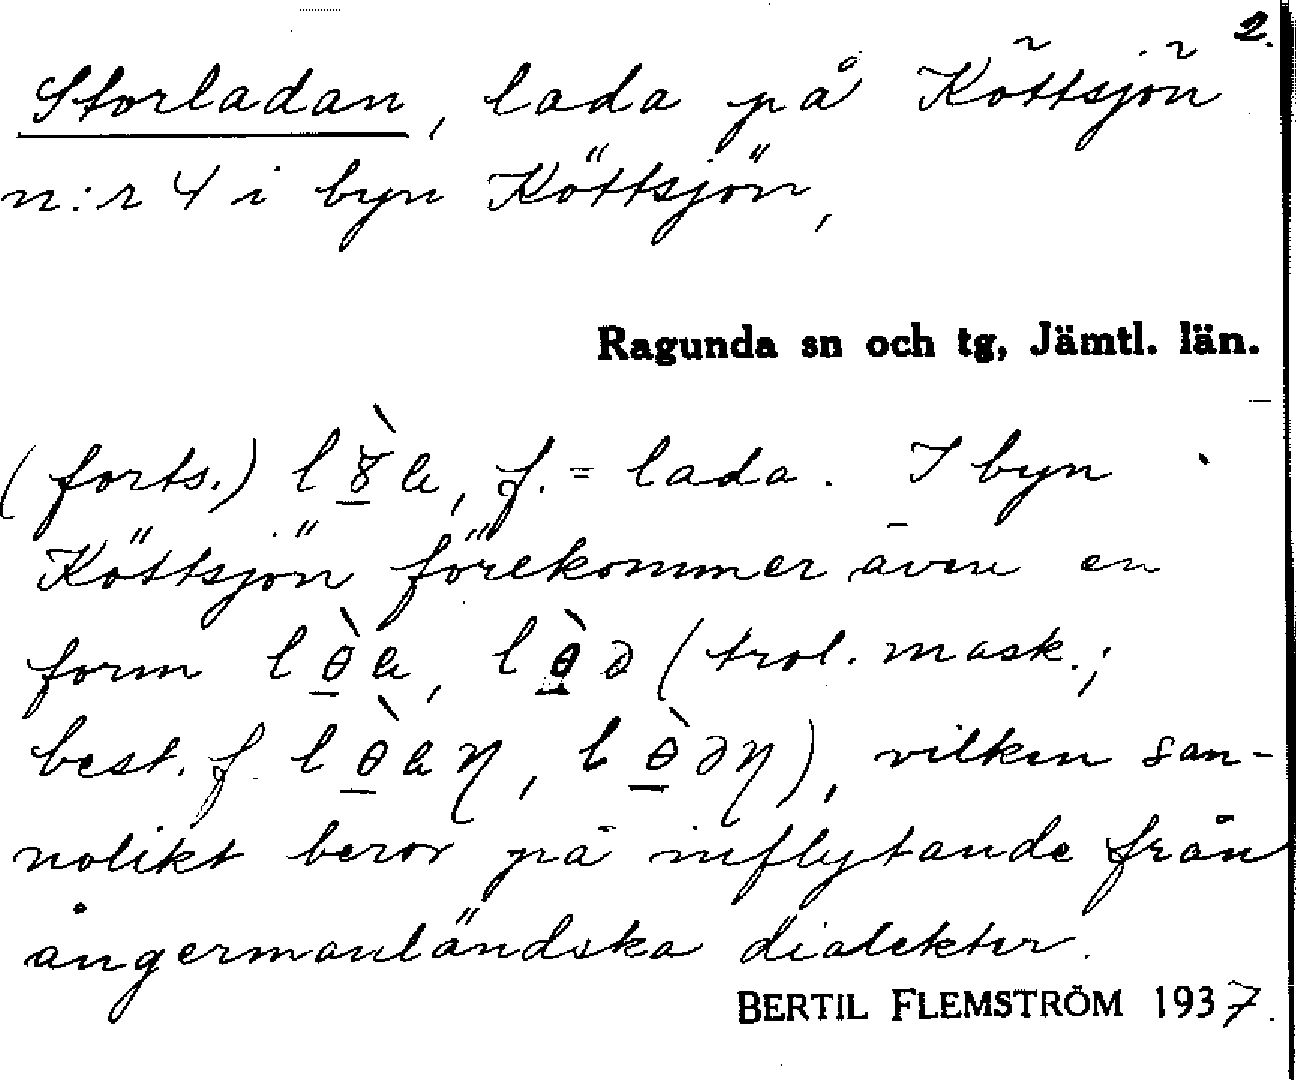 2.
Storladan, lada på Köttsjön
n:r 4 i byn Köttsjön,
Ragunda sn och tg, Jämtl. län.
(forts.) l8̲̀a, f. = lada. I byn
Köttsjön förekommer även en
form lθ̲̀a, lθ̲̀ə (trol. mask.;
best. f. lθ̲̀aη, lθ̲̀əη), vilken san-
nolikt beror på inflytande från
ångermanländska dialekter.
BERTIL FLEMSTRÖM 1937.